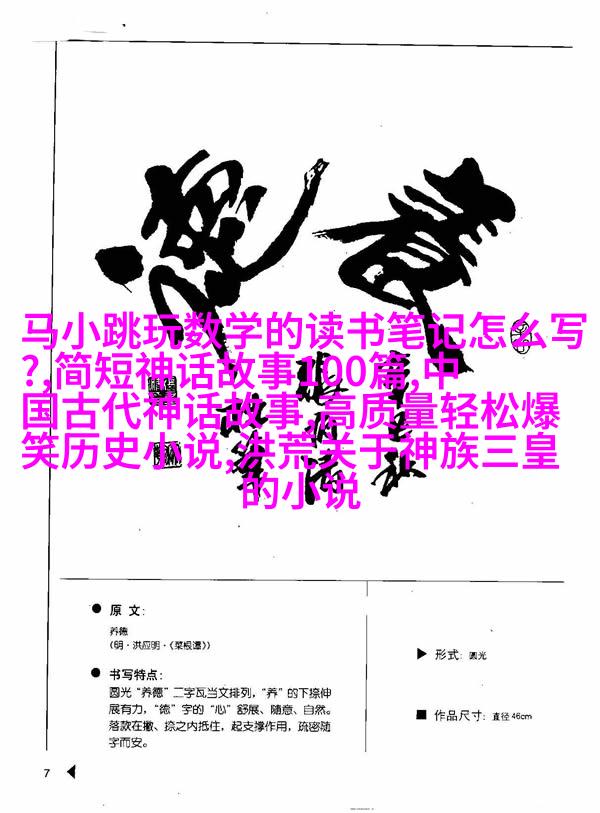 養德
马小跳玩数学的读书笔记怎么写
?,简短神话故事100篇,中
国古代神话故事,高质量轻松爆
笑历史小说,洪荒关于神族三皇
的小说
● 原 文：
养德
(明·洪应明·《菜根谭》)
● 书写特点：
圆光“养德”二字瓦当文排列，“养”的下捺伸
展有力，“德”字的“心”舒展、随意、自然。
落款在撇、捺之内抵住，起支撑作用，疏密随
字而安。
▶ 形式：圆光
■ 作品尺寸：直径46cm
7 ◀